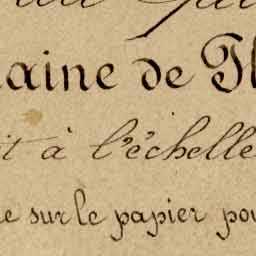 aine de
it à l'échelle
sur le papier pou